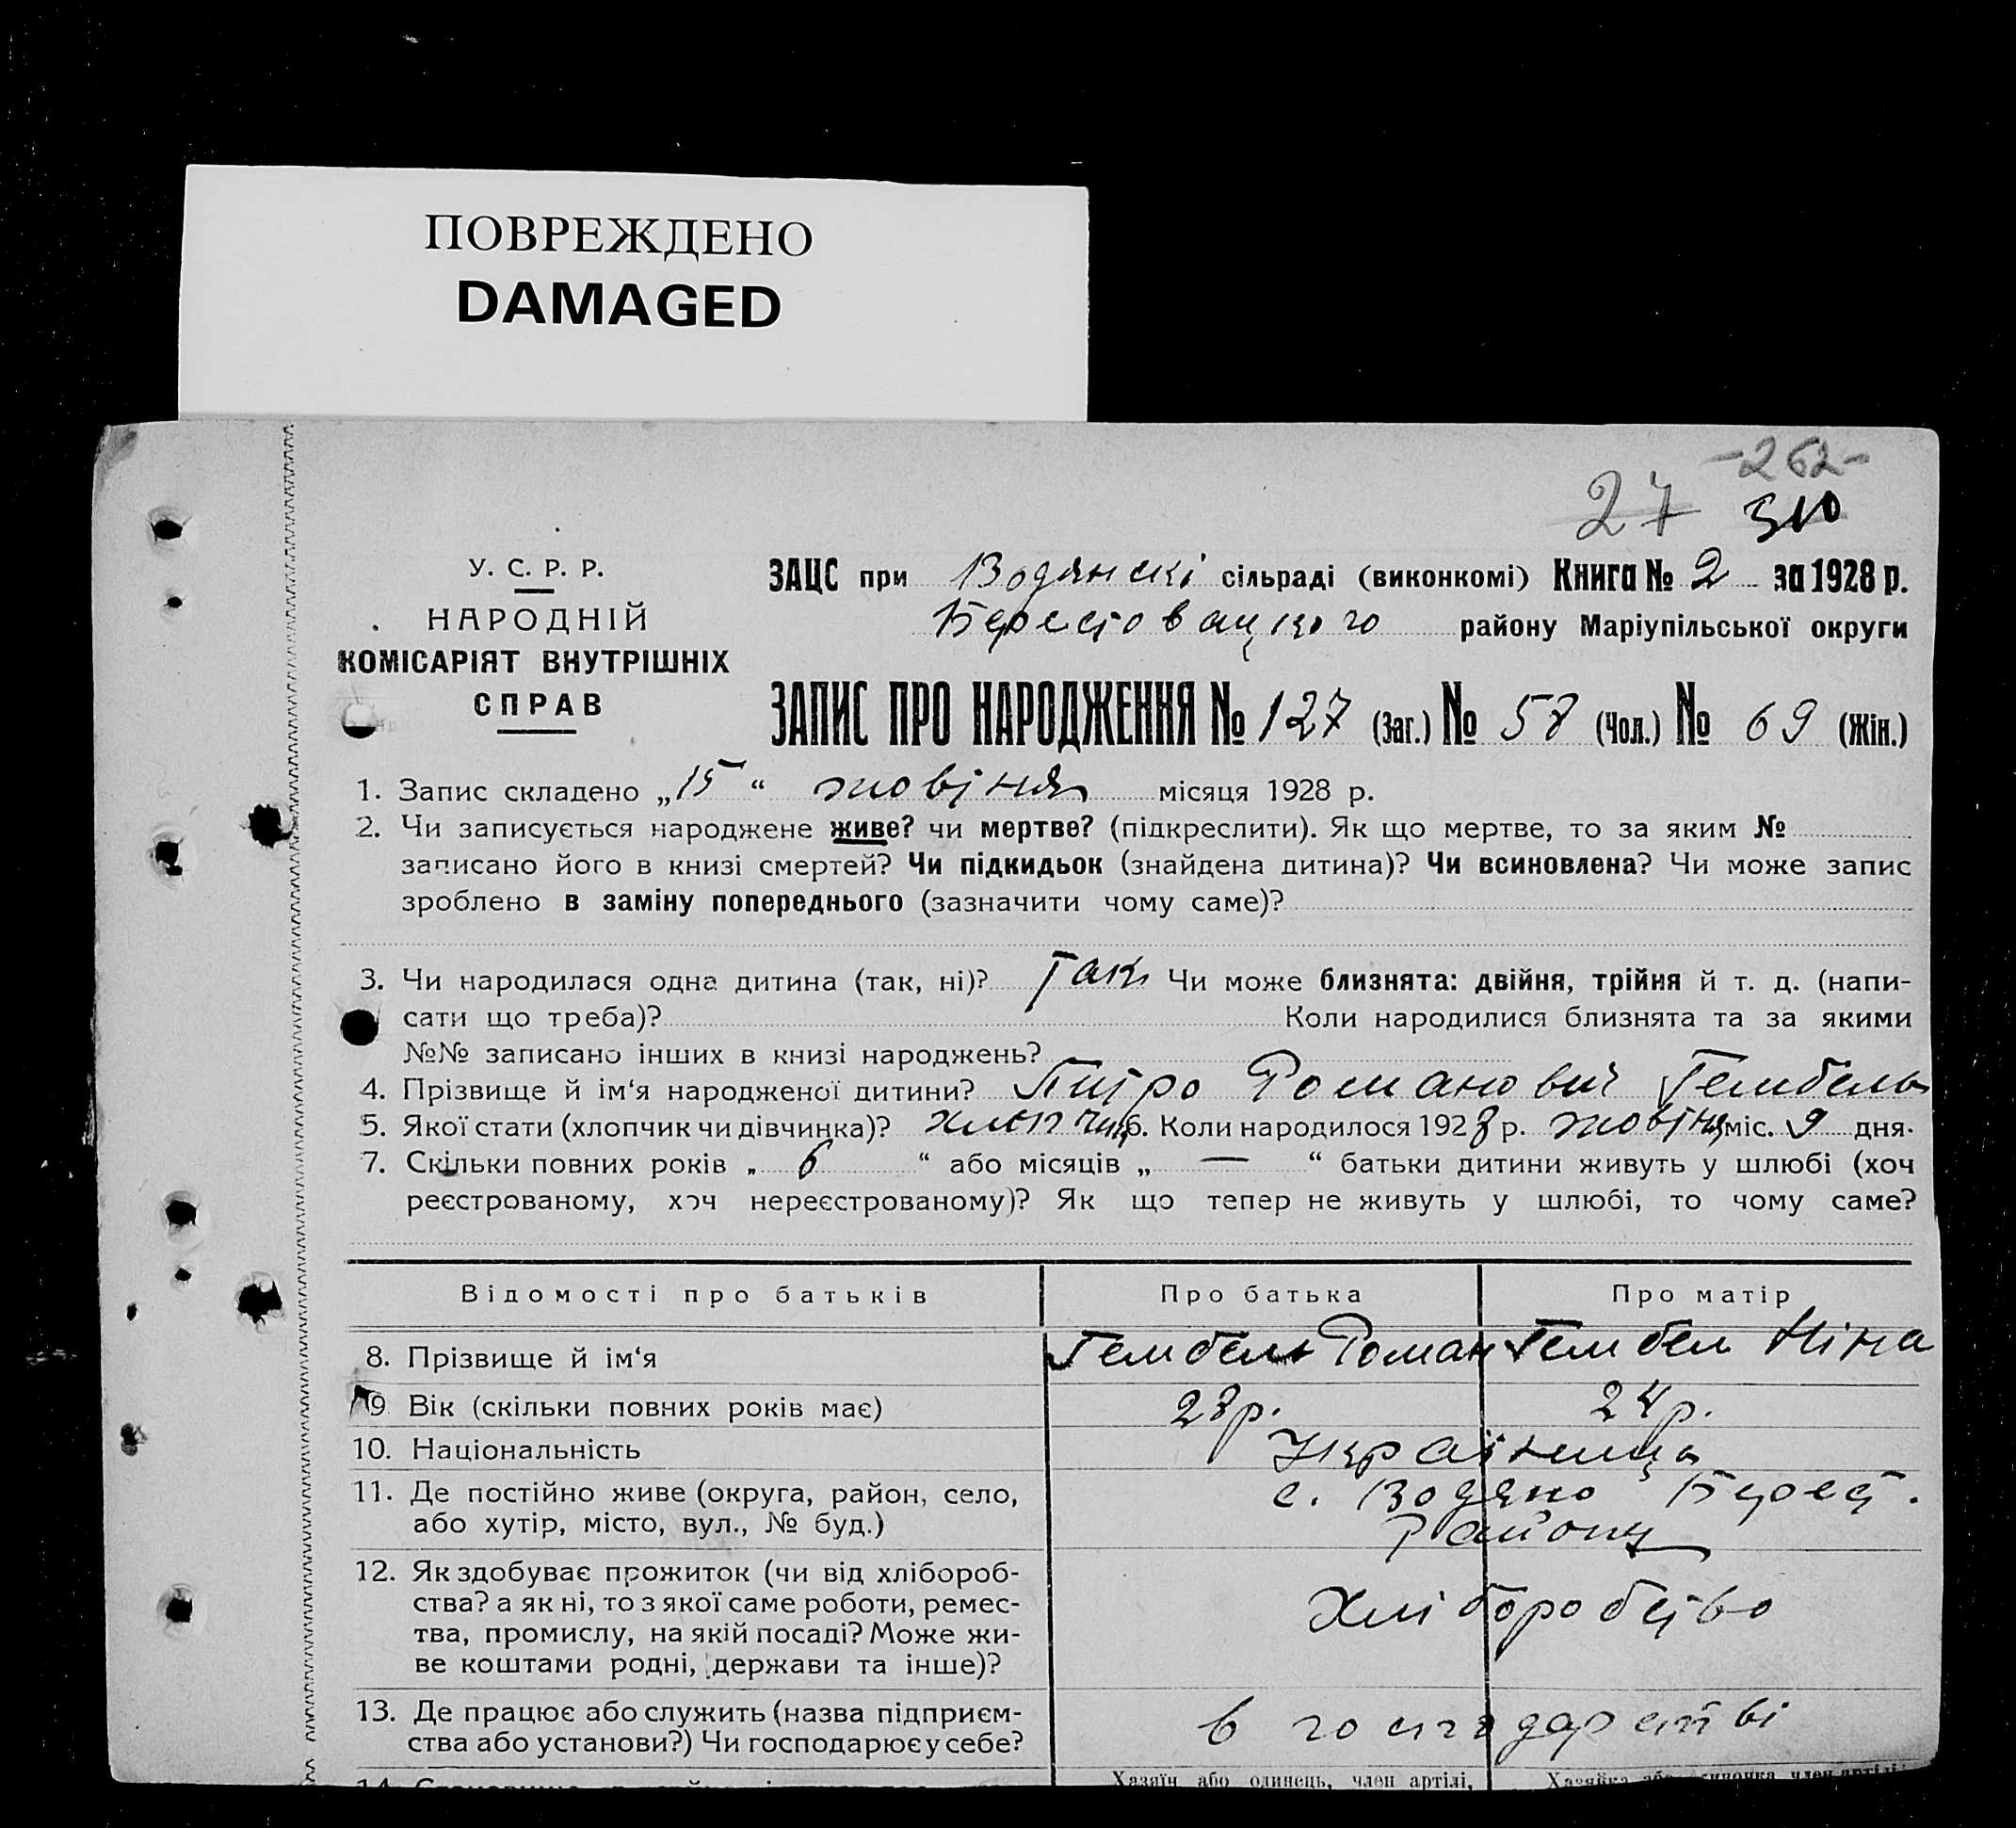 ПОВРЕЖДЕНО
DAMAGED
-262-
27 310
У. С. Р. Р.
НАРОДНІЙ
КОМІСАРІЯТ ВНУТРІШНІХ
СПРАВ
ЗАЦС при Водянскі сільраді (виконкомі) Книга № 2 за 1928 р.
Берестовацкого району Маріупільської округи
ЗАПИС ПРО НАРОДЖЕННЯ № 127 (Заг.) № 58 (Чол.) № 69 (Жін.)
1. Запис складено „15“ жовтня місяця 1928 р.
2. Чи записується народжене живе? чи мертве? (підкреслити). Як що мертве, то за яким №
записано його в книзі смертей? Чи підкидьок (знайдена дитина)? Чи всиновлена? Чи може запис
зроблено в заміну попереднього (зазначити чому саме)?
3. Чи народилася одна дитина (так, ні)? Так Чи може близнята: двійня, трійня й т. д. (напи-
сати що треба)? Коли народилися близнята та за якими
№№ записано інших в книзі народжень?
4. Прізвище й ім‘я народженої дитини? Питро Романович Гембель
5. Якої стати (хлопчик чи дівчинка)? хлопчиц 6. Коли народилося 1928 р. жовтня міс. 9 дня.
7. Скільки повних років „ 6 “ або місяців „ — “ батьки дитини живуть у шлюбі (хоч
реєстрованому, хоч нереєстрованому)? Як що тепер не живуть у шлюбі, то чому саме?
Відомості про батьків Про батька Про матір
8. Прізвище й ім‘я Гембель Роман Гембел Ніна
9 Вік (скільки повних років має) 28р. 24р.
10. Національність Українець
11. Де постійно живе (округа, район, село, с. Водяно Берест.
або хутір, місто, вул., № буд.) Району
12. Як здобуває прожиток (чи від хлібороб-
ства? а як ні, то з якої саме роботи, ремес- Хліборобство
тва, промислу, на якій посаді? Може жи-
ве коштами родні, держави та інше)?
13. Де працює або служить (назва підприєм- в господарстві
ства або установи?) Чи господарює у себе?
Хазяїн або одинець, член артілі,